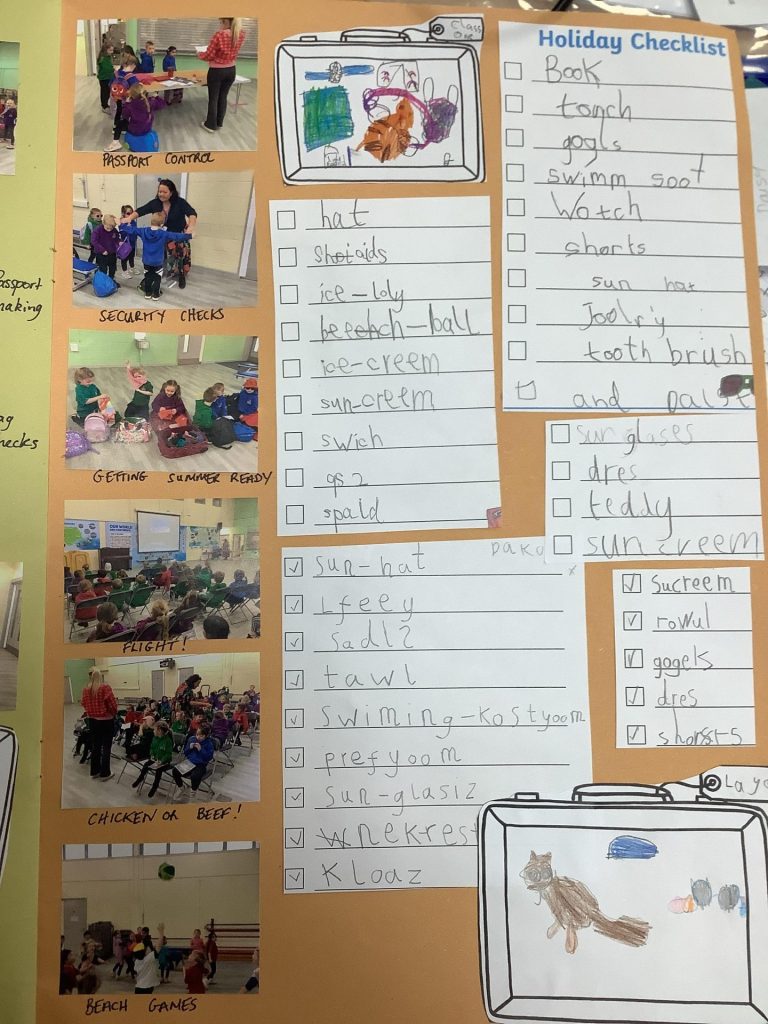 Passport
making
Checks
PASSPORT CONTROL
SECURITY CHECKS
GETTING SUMMER READY
FLIGHT!
CHICKEN OR BEEF!
BEACH GAMES
OUR WORLD
Class
One
hat
ice-loly
ball
ice-creem
sun-creem
swich
spald
Holiday Checklist
Book
torch
gogls
swimm soot
Wotch
shorts
sun hat
Joolry
tooth brush
and
sun glases
dres
teddy
sun creem
sun-hat
Lfeey
sadlz
tawl
swiming-kostyoom
prefyoom
sun-glasiz
nekrest
kloaz
sucreem
rowul
gogels
dres